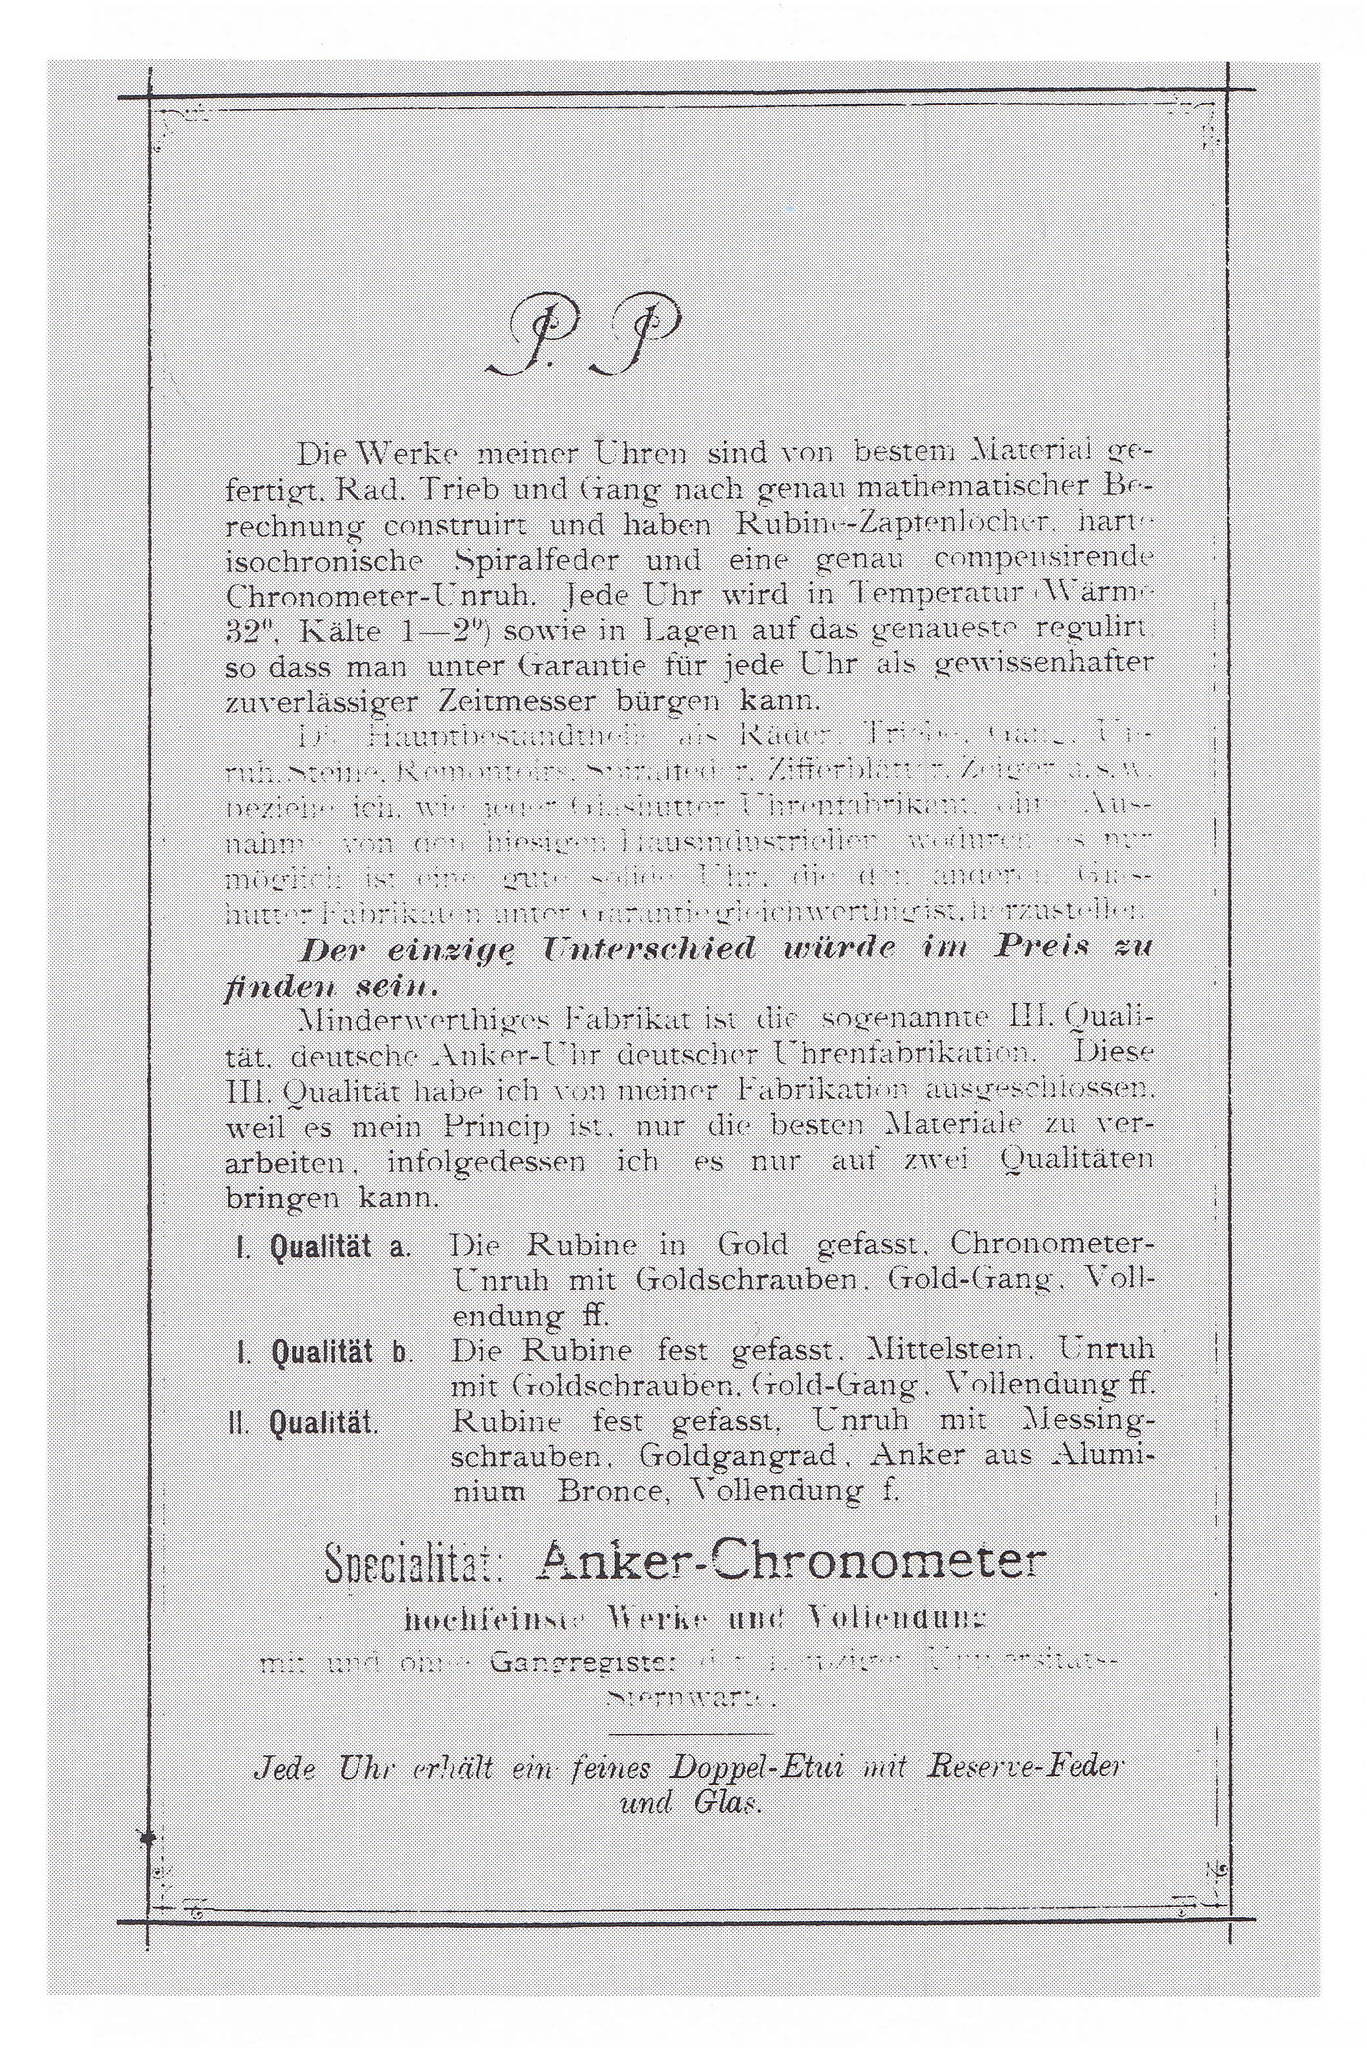 P. P
Die Werke meiner Uhren sind von bestem Material ge-
fertigt. Rad. Trieb und Gang nach genau mathematischer Be-
rechnung construirt und haben Rubine-Zapfenlöcher, harte
isochronische Spiralfeder und eine genau compensirende
Chronometer-Unruh. Jede Uhr wird in Temperatur (Wärme
32⁰, Kälte 1—2⁰) sowie in Lagen auf das genaueste regulirt,
so dass man unter Garantie für jede Uhr als gewissenhafter
zuverlässiger Zeitmesser bürgen kann.
Die Hauptbestandtheile als Räder, Triebe, Gang, Un-
ruh, Steine, Remontoirs, Spiralfeder, Zifferblätter, Zeiger u.s.w.
beziehe ich, wie jeder Glashütter Uhrenfabrikant ohne Aus-
nahme von den hiesigen Hausindustriellen, wodurch es nur
möglich ist eine gute solide Uhr, die den anderen Glas-
hütter Fabrikaten unter Garantie gleichwerthig ist, herzustellen.
Der einzige Unterschied würde im Preis zu
finden sein.
Minderwerthiges Fabrikat ist die sogenannte III. Quali-
tät, deutsche Anker-Uhr deutscher Uhrenfabrikation. Diese
III. Qualität habe ich von meiner Fabrikation ausgeschlossen,
weil es mein Princip ist, nur die besten Materiale zu ver-
arbeiten, infolgedessen ich es nur auf zwei Qualitäten
bringen kann.
I. Qualität a. Die Rubine in Gold gefasst, Chronometer-
Unruh mit Goldschrauben, Gold-Gang, Voll-
endung ff.
I. Qualität b. Die Rubine fest gefasst, Mittelstein, Unruh
mit Goldschrauben, Gold-Gang, Vollendung ff.
II. Qualität. Rubine fest gefasst, Unruh mit Messing-
schrauben, Goldgangrad, Anker aus Alumi-
nium Bronce, Vollendung f.
Specialität: Anker-Chronometer
hochfeinste Werke und Vollendung
mit und ohne Gangregister der Leipziger Universitäts-
Sternwarte.
Jede Uhr erhält ein feines Doppel-Etui mit Reserve-Feder
und Glas.